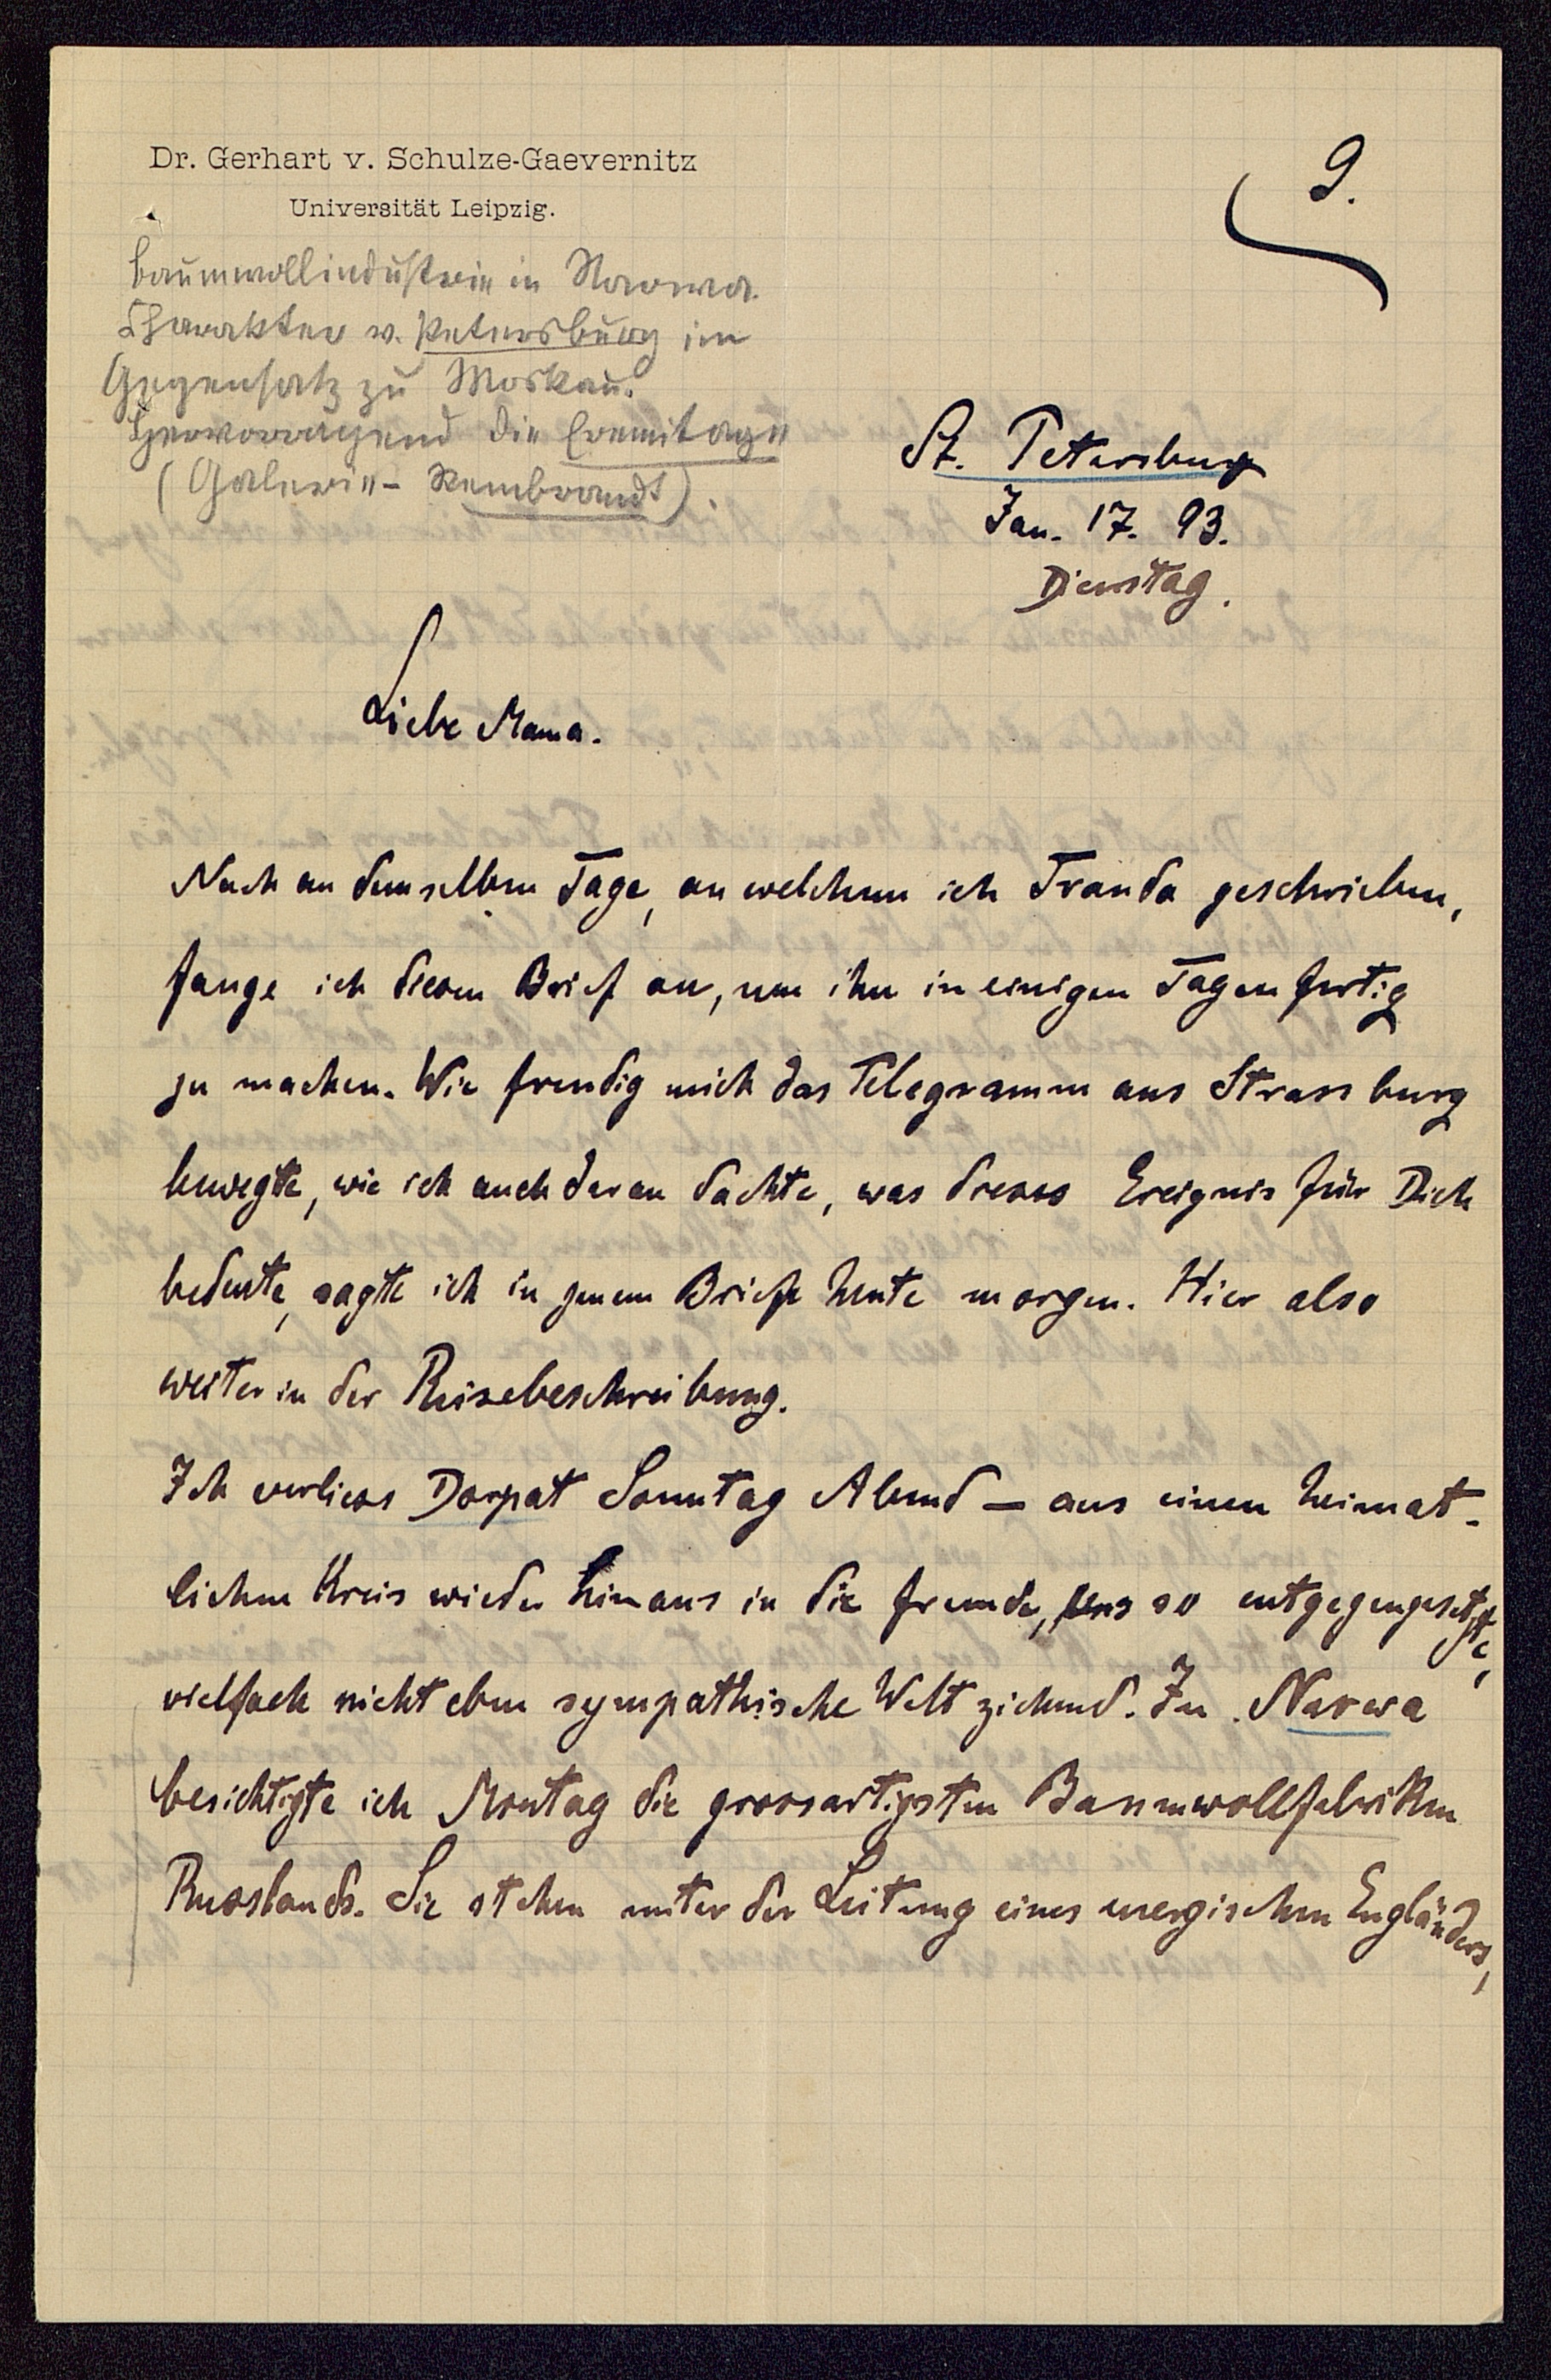 Dr. Gerhart v. Schulze-Gaevernitz
Universität Leipzig.
9.
Baumwollindustrie in Narwa.
Charakter v. Petersburg im
Gegensatz zu Moskau.
Hervorragend die Eremitage
(Galerie - Rembrandt).
St. Petersburg
Jan. 17. 93.
Dienstag.
Liebe Mama.
Noch an demselben Tage, an welchem ich Tranda geschrieben,
fange ich diesen Brief an, um ihn in einigen Tagen fertig
zu machen. Wie freudig mich das Telegramm aus Strassburg
bewegte, wie ich auch daran dachte, was dieses Ereignis für Dich
bedeute, sagte ich in jenem Briefe heute morgen. Hier also
weiter in der Reisebeschreibung.
Ich verliess Dorpat Sonntag Abend – aus einem heimat-
lichen Kreis wieder hinaus in die fremde, uns so entgegengesetzte,
vielfach nicht eben sympathische Welt ziehend. In Narwa
besichtigte ich Montag die grossartigsten Baumwollfabriken
Russlands. Sie stehen unter der Leitung eines energischen Engländers,